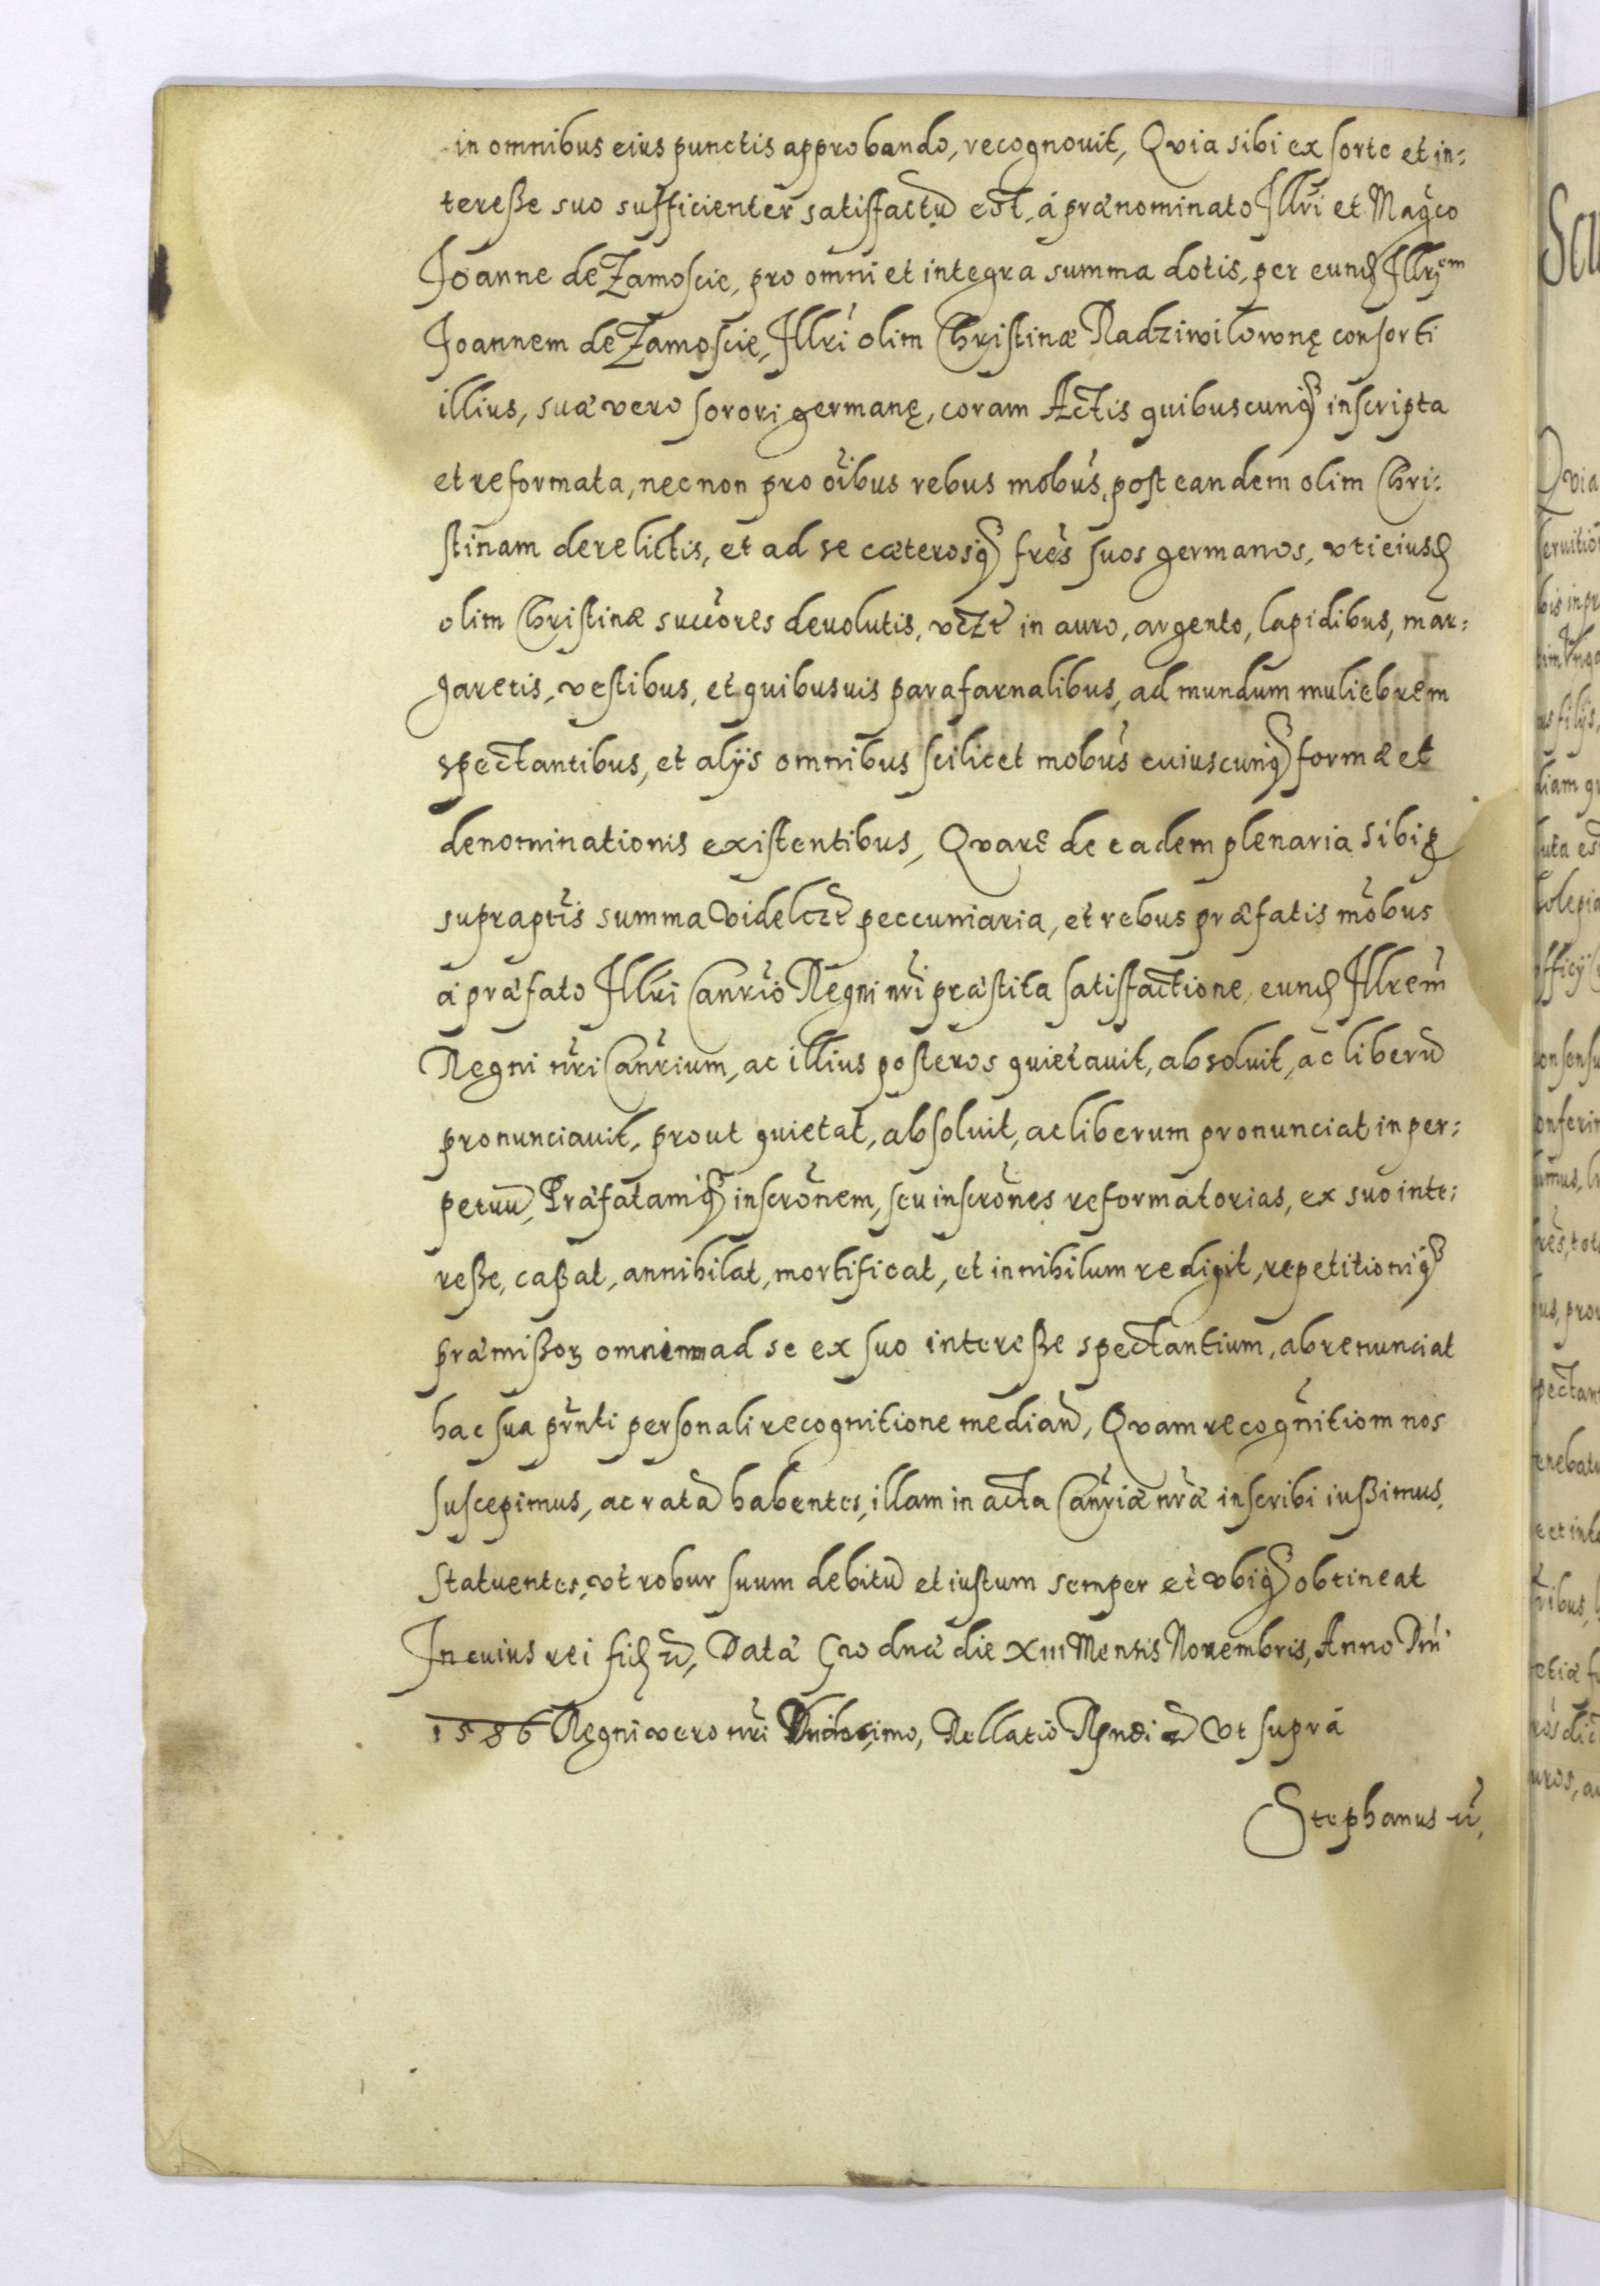 in omnibus eius punctis approbando, recognouit, Qvia sibi ex sorte et in:
tereße suo sufficienter satisfactũ est, á prænominato Illri et Magco
Joanne de Zamoscie, pro omni et integra summa dotis, per eundē Illrem
Joannem de Zamoscie, Illri olim Christinæ Radziwilownę consorti
illius, suæ vero sorori germanę, coram Actis quibuscunq3 inscripta
et reformata, nec non pro oĩbus rebus mobũs, post eandem olim Chri:
stinam derelictis, et ad se cæterosq3 fres suos germanos, vti eiusd
olim Christinæ succores deuolutis, vczt in auro, argento, lapidibus, mar:
garetis, vestibus, et quibusuis parafarnalibus, ad mundum muliebrem
spectantibus, et alijs omnibus scilicet mobũs cuiuscunq3 formæ et
denominationis existentibus, Qvare de eadem plenaria sibi p
supraptis summa videlczt peccuniaria, et rebus præfatis mobus
á præfato Illri Canrio Regni nri præstita satisfactione, eund Illrem
Regni nri Canrium, ac illius posteros quietauit, absoluit, ac liberũ
pronunciauit, prout quietat, absoluit, ac liberum pronunciat in per:
petuũ, Præfatamq3 inscronem, seu inscrones reformatorias, ex suo inte:
reße, caßat, annihilat, mortificat, et in nihilum redigit, repetitioniq3
præmißor omnium ad se ex suo intereße spectantium, abrenunciat
hac sua prnti personali recognitione mediañ, Qvam recognitiom nos
suscepimus, ac ratã habentes, illam in acta Canriæ nræ inscribi iußimus,
Statuentes, vt robur suum debitũ et iustum semper et vbiq3 obtineat
In cuius rei fid ꝛc, Datæ Grodnæ die XIII Mensis Nouembris, Anno Dni
1586 Regni vero nri Vndecimo, Rellatio Rndi ꝛc Vt supra
Stephanus ꝛ,